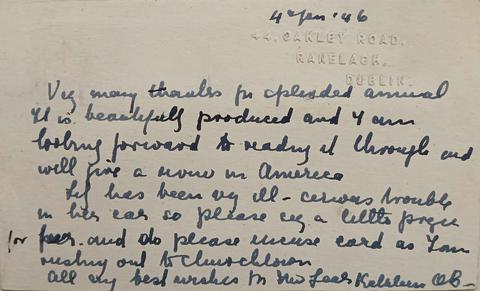 4 Jan '46
44. OAKLEY ROAD.
RANELAGH.
DUBLIN.
Very many thanks for splendid annual
It is beautifully produced and I am
looking forward to reading it through and
will give a review in America
has been very ill - serious trouble
in her ear so please say a little prayer
for her. and do please excuse card as I am
rushing out to Churchtown
All my best wishes for New Year Kathleen OB-